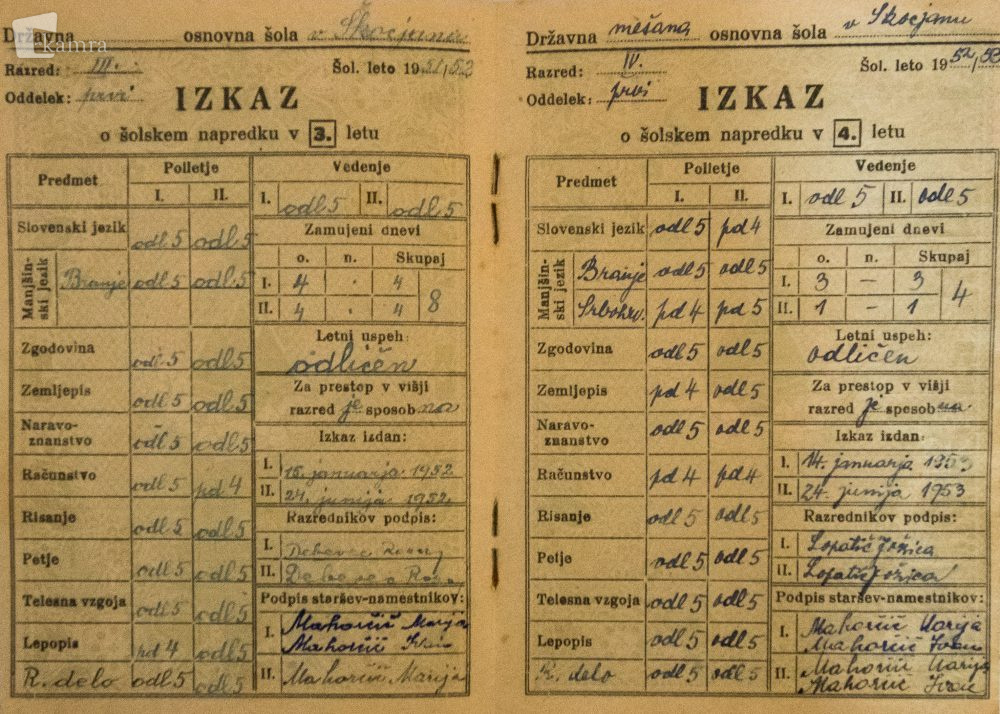 kamra
Državna osnovna šola v Škocjanu
Razred: III. Šol. leto 1951/52
Oddelek: prvi
IZKAZ
o šolskem napredku v 3. letu
Predmet Polletje Vedenje
I. II. I. odl 5 II. odl 5
Slovenski jezik odl 5 odl 5 Zamujeni dnevi
Manjšin-
ski jezik
Branje odl 5 odl 5
o. n. Skupaj
I. 4 . 4
8
II. 4 . 4
Zgodovina odl. 5 odl 5
Letni uspeh:
odličen
Zemljepis odl 5 odl 5
Za prestop v višji
razred je sposobna
Naravo-
znanstvo odl 5 odl 5
Izkaz izdan:
Računstvo odl 5 pd 4
I. 15. januarja 1952
II. 24. junija 1952.
Risanje odl 5 odl 5
Razrednikov podpis:
Petje odl 5 odl 5
I.
II.
Telesna vzgoja odl 5 odl 5
Podpis staršev-namestnikov:
Lepopis pd 4 odl 5
I. Mahorčič Marija
Mahorčič Ivan
R. delo odl 5 odl 5
II. Mahorčič Marija
Državna mešana osnovna šola v Škocjanu
Razred: IV. Šol. leto 1952/53
Oddelek: prvi
IZKAZ
o šolskem napredku v 4. letu
Predmet Polletje Vedenje
I. II. I. odl 5 II. odl 5
Slovenski jezik odl 5 pd 4 Zamujeni dnevi
Manjšin-
ski jezik
Branje odl 5 odl 5
Srbohrv. pd 4 pd 5
o. n. Skupaj
I. 3 – 3
4
II. 1 – 1
Zgodovina odl 5 odl 5
Letni uspeh:
odličen
Zemljepis pd 4 odl 5
Za prestop v višji
razred je sposobna
Naravo-
znanstvo odl 5 odl 5
Izkaz izdan:
Računstvo pd 4 pd 4
I. 14. januarja 1953
II. 24. junija 1953
Risanje odl 5 odl 5
Razrednikov podpis:
Petje odl 5 odl 5
I. Lopatič Jožica
II. Lopatič Jožica
Telesna vzgoja odl 5 odl 5
Podpis staršev-namestnikov:
Lepopis odl 5 odl 5
I. Mahorčič Marija
Mahorčič Ivan
R. delo odl 5 odl 5
II. Mahorčič Marija
Mahorčič Ivan